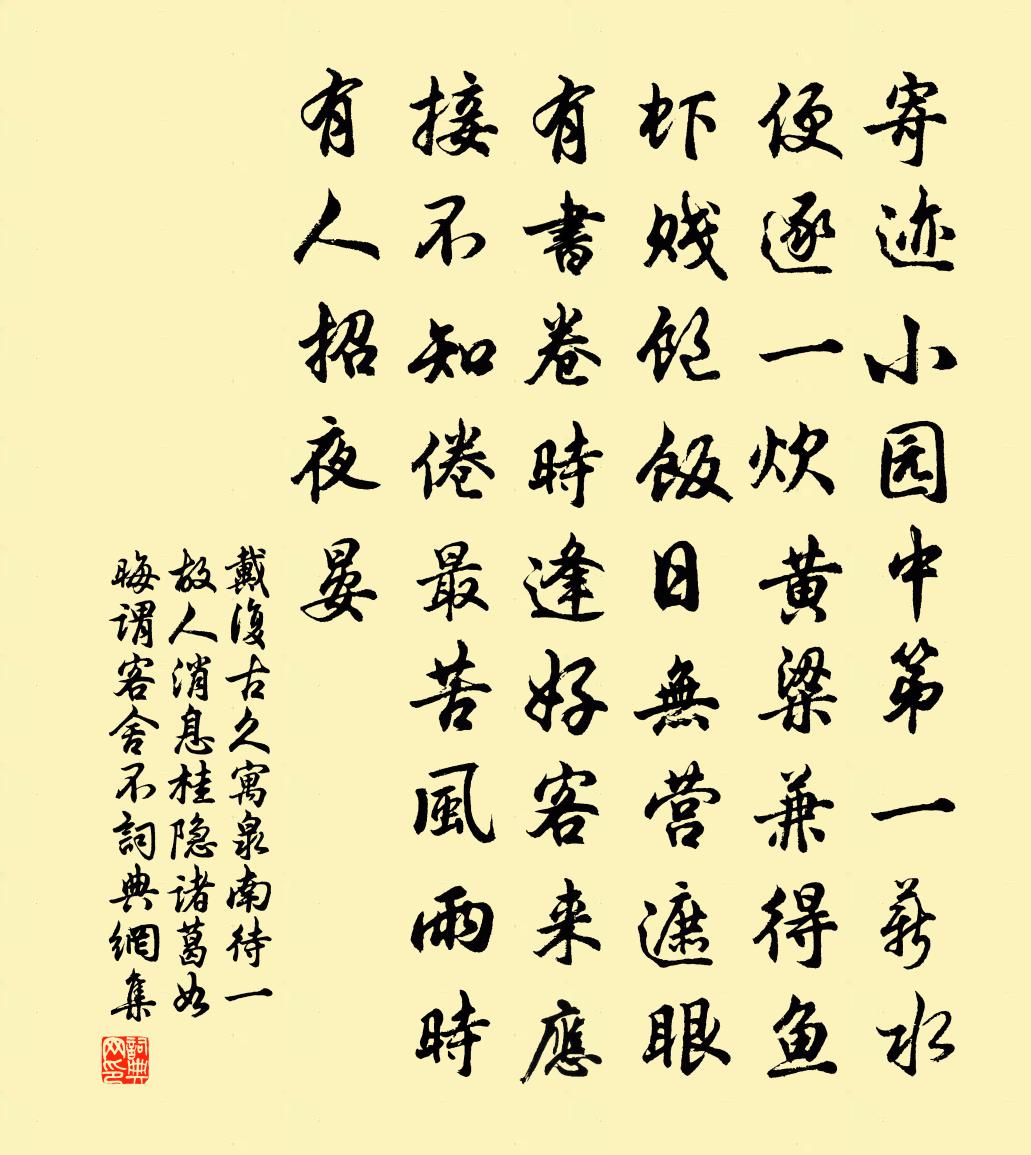 寄迹小园中第一薪水
便逐一炊黄粱兼得鱼
虾贱饱饭日無营遮眼
有書卷時逢好客来應
接不知倦最苦風雨時
有人招夜宴
戴復古久寓泉南待一
故人消息桂隐诸葛如
晦谓客舍不詞典網集